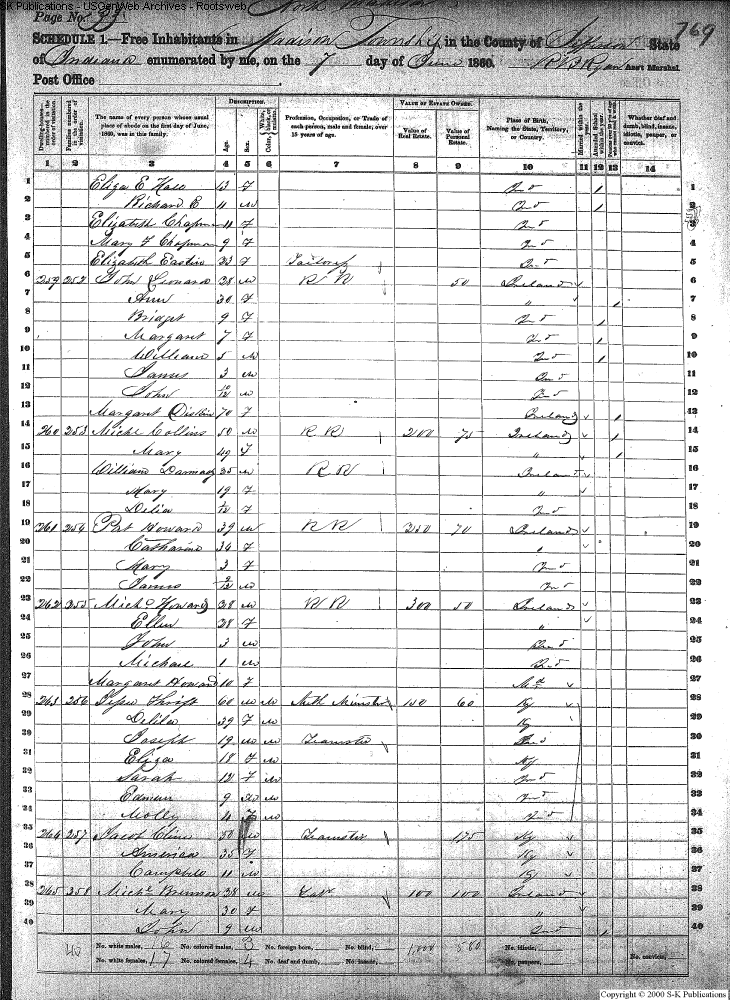 S-K Publications - USGenWeb Archives - Rootsweb
Page No. 33
North Madison
769
SCHEDULE 1.—Free Inhabitants in Madison Township, in the County of Jefferson State
of Indiana enumerated by me, on the 7 day of June 1860. Ass't Marshal.
Post Office
Dwelling-houses—numbered in the order of visitation.
Families numbered in the order of visitation.
The name of every person whose usual place of abode on the first day of June, 1860, was in this family.
DESCRIPTION.
Age.
Sex.
Color, White, black, or mulatto.
Profession, Occupation, or Trade of each person, male and female, over 15 years of age.
VALUE OF ESTATE OWNED.
Value of Real Estate.
Value of Personal Estate.
Place of Birth, Naming the State, Territory, or Country.
Married within the year.
Attended School within the year.
Whether deaf and dumb, blind, insane, idiotic, pauper, or convict.
1 2 3 4 5 6 7 8 9 10 11 12 13 14
1 Eliza E 13 F Ind / 1
2 Richard E 11 m Ind / 2
3 Elizabeth Chapman 11 F Ind 3
4 Mary F Chapman 9 F Ind 4
5 Elizabeth Eastin 23 F Ind 5
6 259 252 John Leonard 28 m R R 50 Ireland 6
7 Ann 30 F " / 7
8 Bridget 9 F Ind / 8
9 Margaret 7 F Ind / 9
10 William 5 m Ind / 10
11 James 3 m Ind 11
12 John /12 m Ind 12
13 Margaret 70 F Ireland / 13
14 260 253 Michl Collins 50 m R R 200 75 Ireland / 14
15 Mary 49 F " / 15
16 William 25 m R R Ireland 16
17 Mary 19 F " 17
18 Delia /12 F Ind 18
19 261 254 Pat Howard 39 m R R 250 70 Ireland 19
20 Catharine 34 F " 20
21 Mary 3 F Ind 21
22 James /12 m Ind 22
23 262 255 Micho Howard 28 m R R 300 50 Ireland 23
24 Ellen 28 F " 24
25 John 3 m Ind 25
26 Michael 1 m Ind 26
27 Margaret Howard 10 F 27
28 263 256 Thrift 60 m m Meth Minister 150 60 Ky 28
29 Delila 39 F m Ky 29
30 Joseph 19 m m Teamster Ind 30
31 Eliza 18 F m Ky 31
32 Sarah 12 F m Ind 32
33 9 m m Ind 33
34 Molly 4 F m Ind 34
35 264 257 Jacob Cline 50 m Teamster 175 Ky 35
36 America 35 F Ky 36
37 Campbell 11 m Ky 37
38 265 258 Michl 38 m 100 100 Ireland 38
39 Mary 30 F " 39
40 John 9 m Ind / 40
40 No. white males, 16 No. colored males, 3 No. foreign born, No. blind, 1,000 580 No. idiotic,
No. white females, 17 No. colored females, 4 No. deaf and dumb, No. insane, No. paupers, No. convicts,
Copyright © 2000 S-K Publications